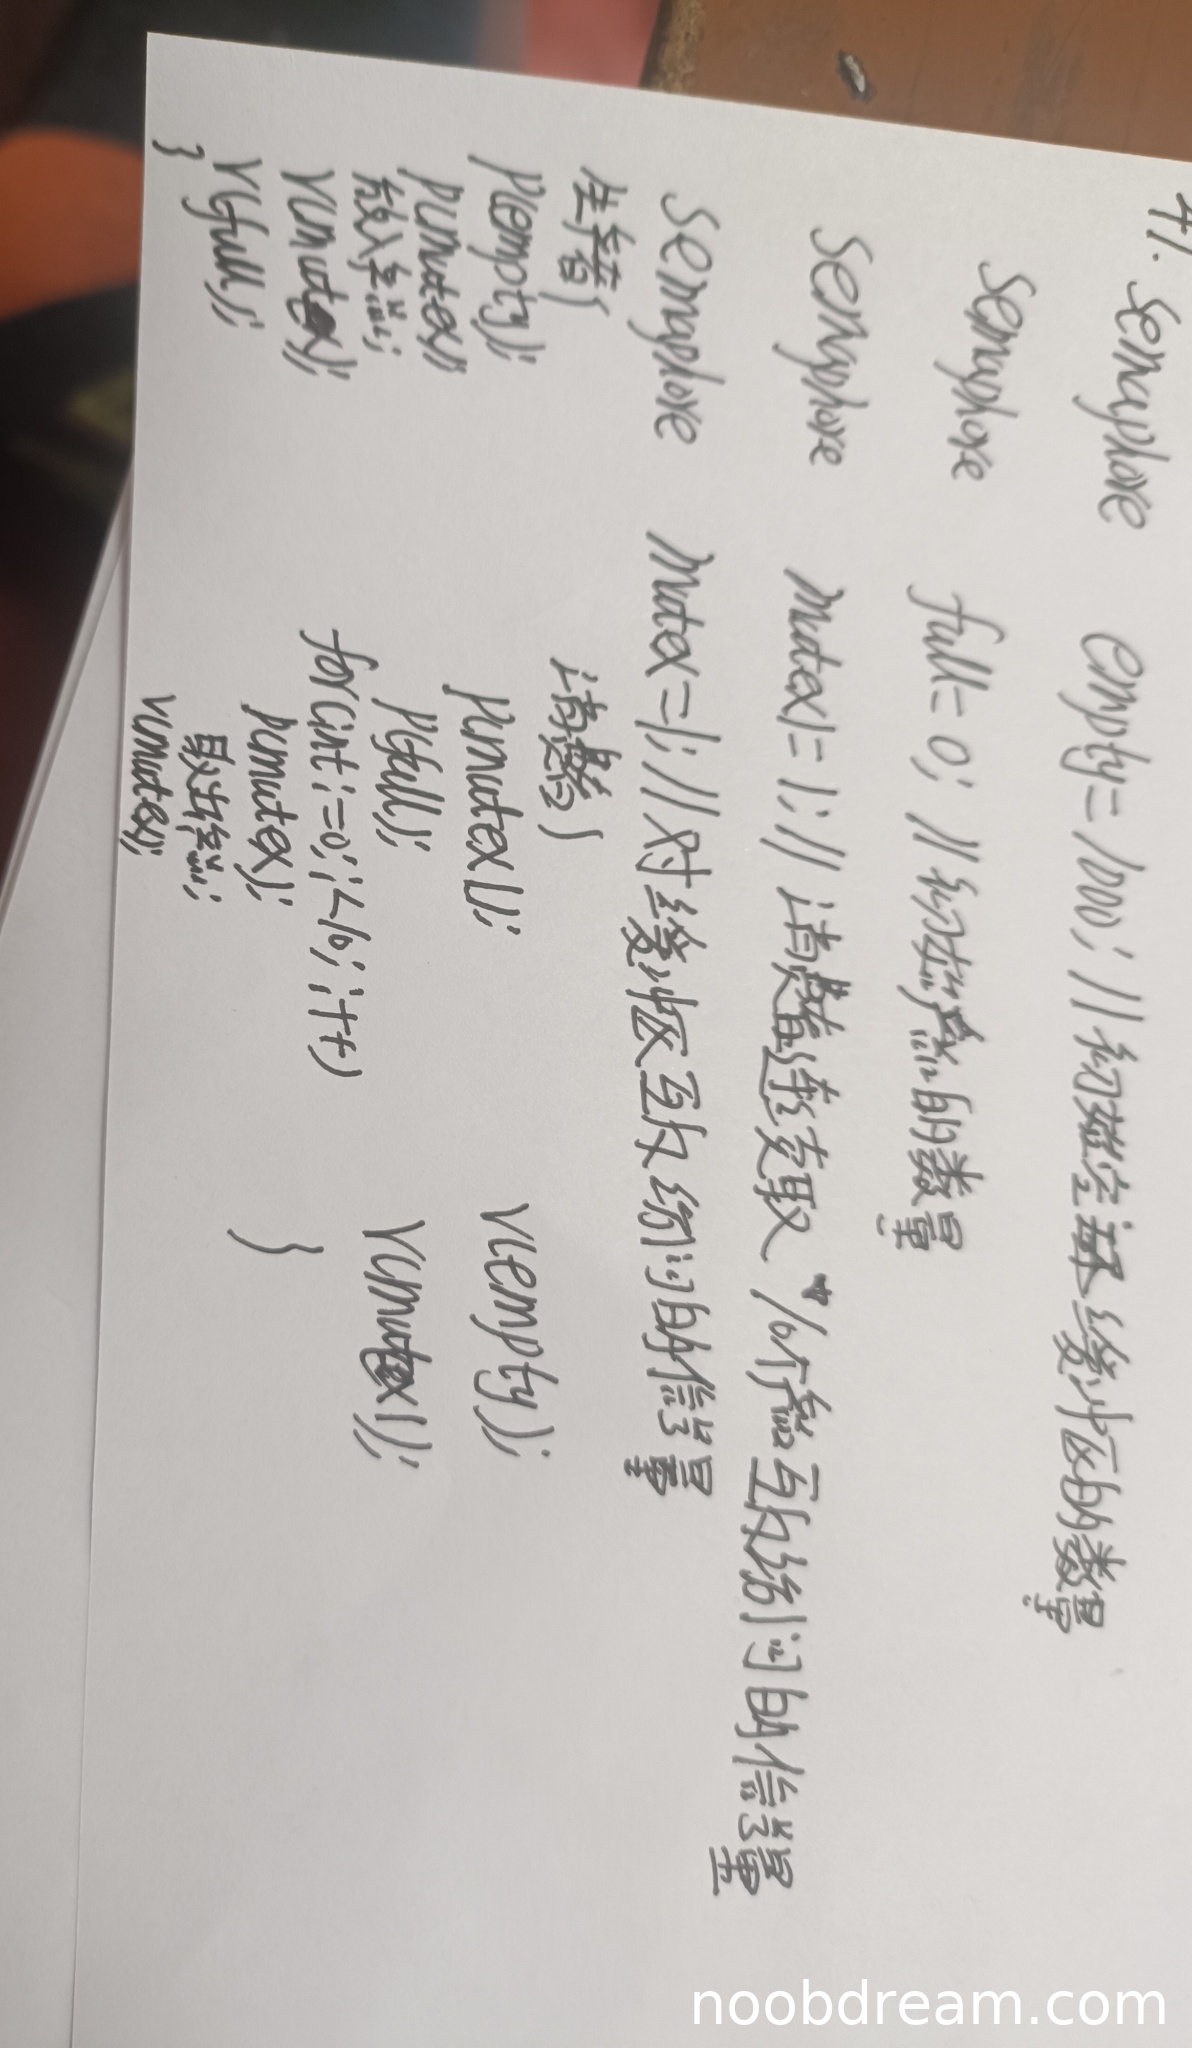 41. Semaphore empty=1000; //初始空缓冲区的数量
Semaphore full=0; //初始产品的数量
Semaphore mutex1=1; //消费者连续取10个产品互斥访问的信号量
Semaphore mutex=1; //对缓冲区互斥访问的信号量
生产者{
P(empty);
P(mutex);
放入产品;
V(mutex);
V(full);
}
消费者{
P(mutex1);
P(full);
for(int i=0; i<10; i++)
P(mutex);
取出产品;
V(mutex);
V(empty);
V(mutex1);
}
noobdream.com